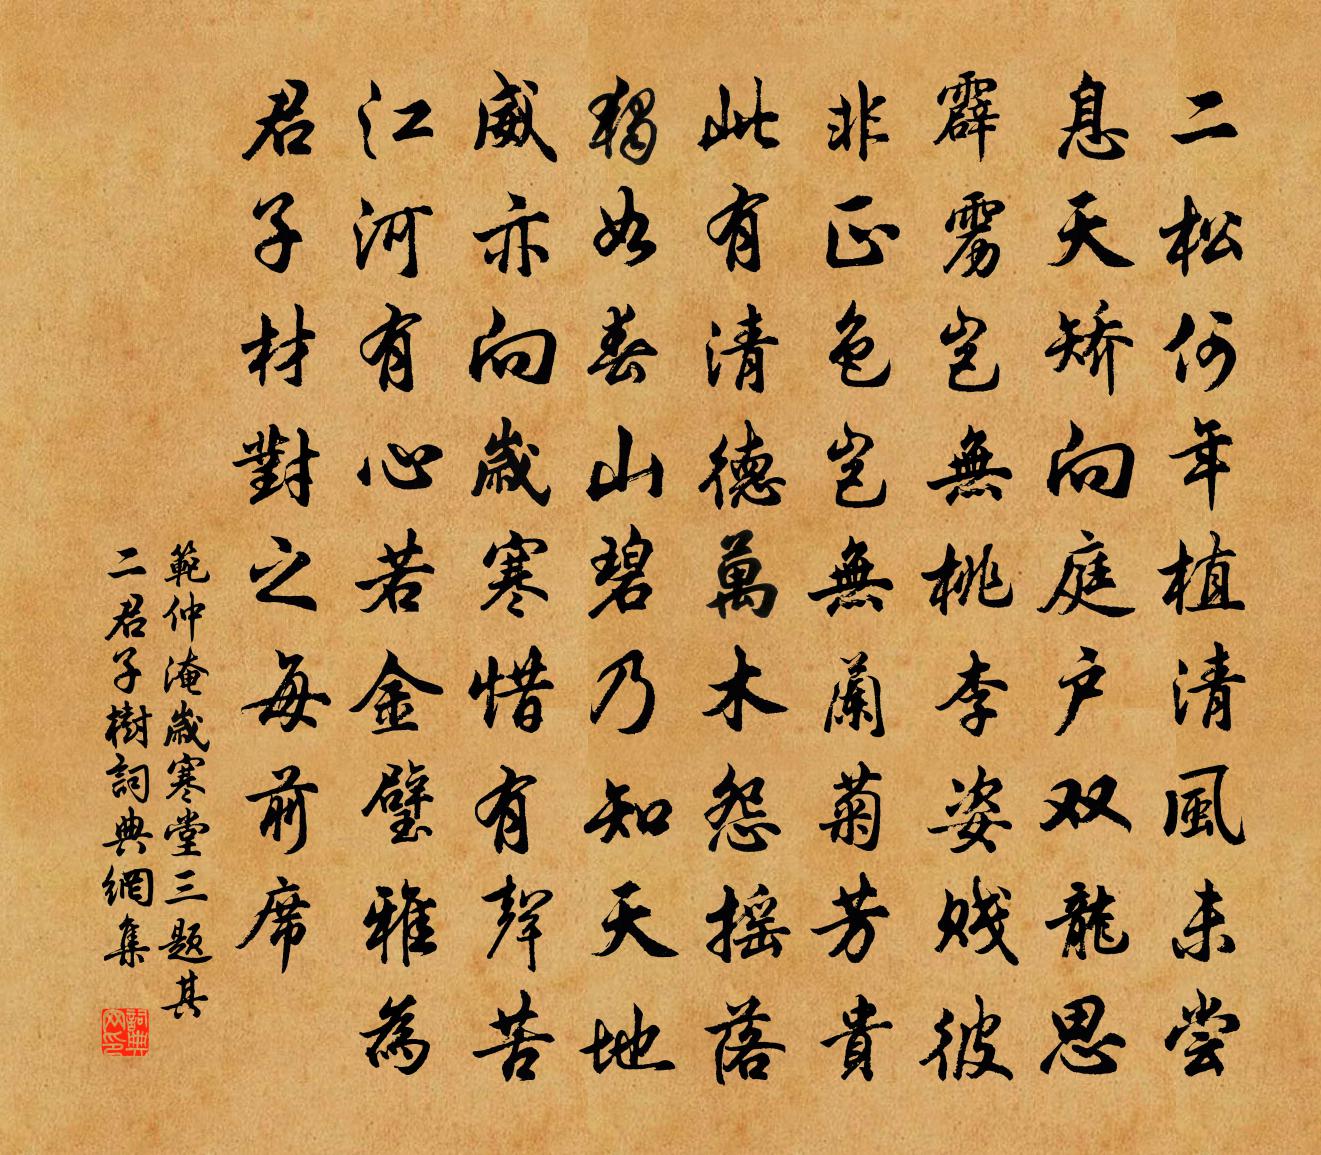 二松何年植清風未嘗
息天矫向庭戶双龍思
霹雳豈無桃李姿賤彼
非正色豈無蘭菊芳貴
此有清德萬木怨摇落
獨如春山碧乃知天地
威亦向歲寒惜有聲苦
江河有心若金璧雅為
君子材對之每前席
範仲淹歲寒堂三題其
二君子樹詞典網集
詞典
网印